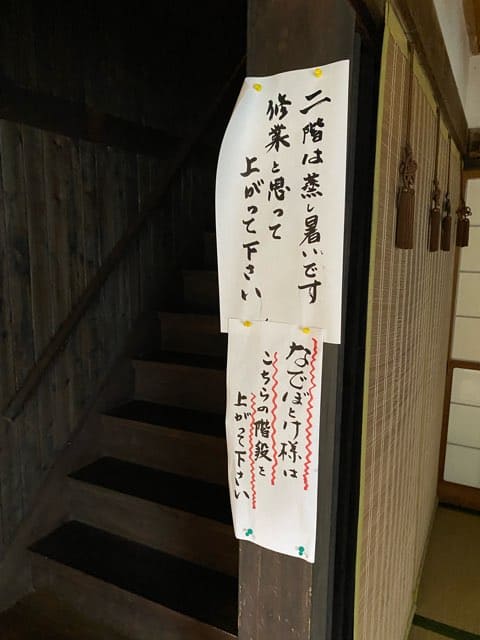 二階は蒸し暑いです
修業と思って
上がって下さい
なでぼとけ様は
こちらの階段を
上がって下さい